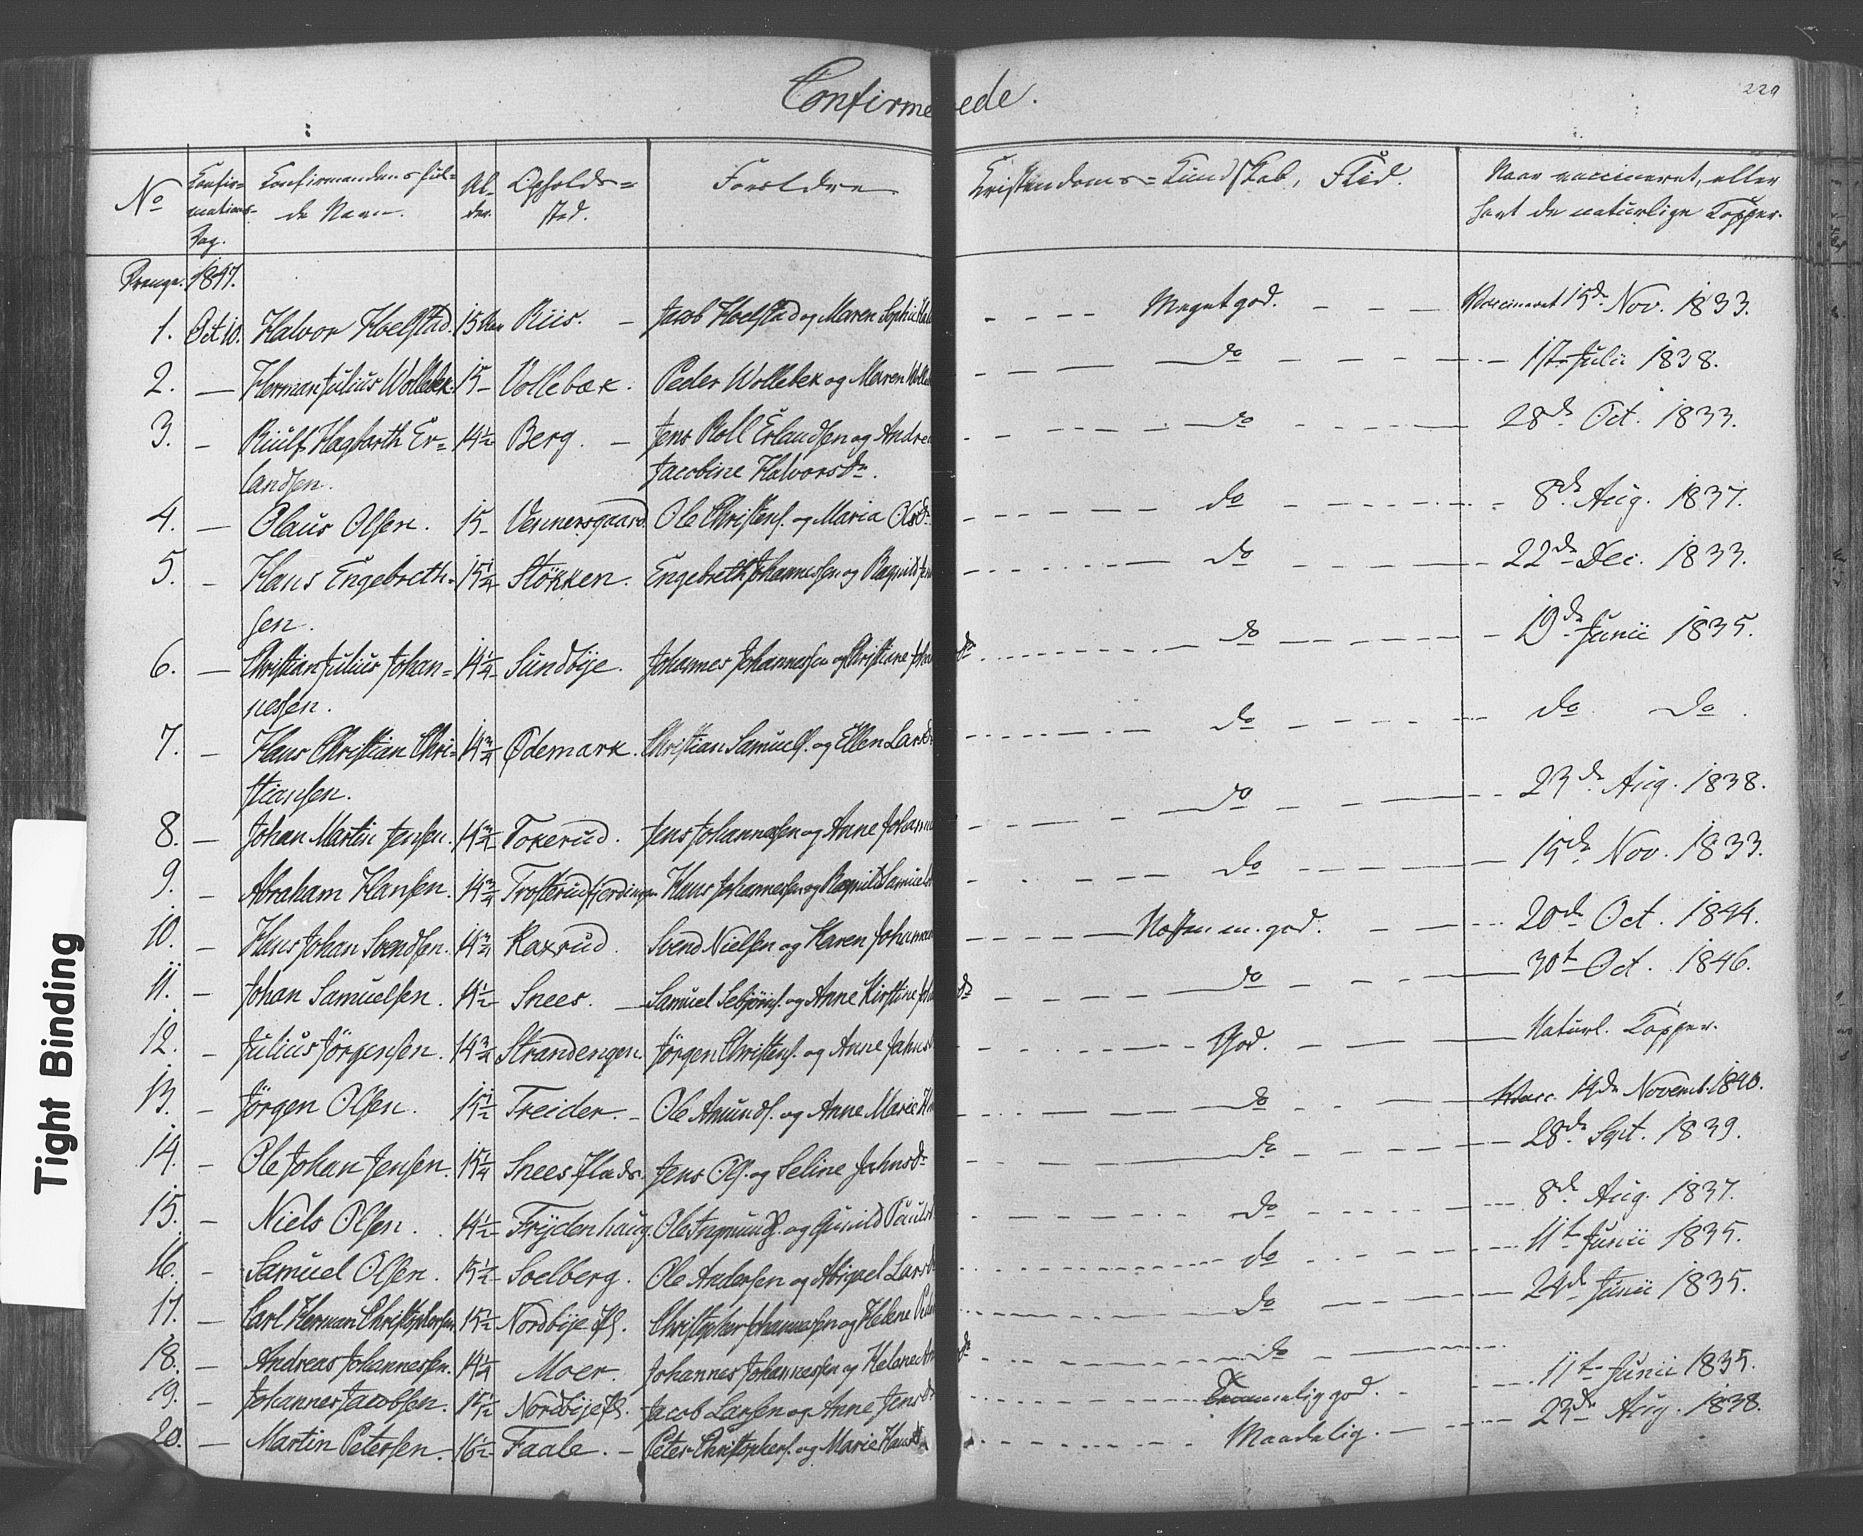 Confirmerede.
229
No
Confir-
mations-
Dag.
Confirmandens ful-
de Navn.
Al-
der.
Opholds-
sted.
Forældre
Christendoms-Kundskab, Flid.
Naar vaccineret, eller
havt de naturlige Kopper.
Drenge. 1847.
1. Oct 10. Halvor Hoelstad. 15 Riis. Jacob Hoelstad og Maren Sophie Meget god. Vaccineret 15de Nov. 1833.
2. Herman Julius Wollebek 15 Vollebæk. Peder Wollebek og Maren do 1ste Julii 1838.
3. Riulf Hagbarth Er- 14½ Berg. Jens Roll Erlandsen og Andre do 28de Oct. 1833.
landsen. Jacobine Halvorsdr.
4. Olaus Olsen. 15 Vennersgaard Ole Christens. og Maria Olsdr do 8de Aug. 1837.
5. Hans Engebreth- 15¼ Støkken. Engebreth Johannessen og Ragnild do 22de Dec. 1833.
sen.
6. Christian Julius Johan- 14¼ Sundbye. Johannes Johannessen og Christiane dr do 19de Junii 1835.
nessen.
7. Hans Christian Chri- 14¾ Ødemark. Christian Samuels. og Ellen Larsd do do do
stiansen.
8. Johan Martin Jensen. 14¾ Tokerud. Jens Johannesen og Anne Johann do 23de Aug. 1838.
9. Abraham Hansen. 14¾ Trosterudfjerdingen Hans Johannessen og Ragnild Samuels do 15de Nov. 1833.
10. Hans Johan Svendsen. 14¾ Kaxrud. Svend Nielsen og Karen Johann Næsten m. god. 20de Oct. 1844.
11. Johan Samuelsen. 14½ Snees. Samuel Sebjørns. og Anne Kirstine Joh dr do 30t Oct. 1846.
12. Julius Jørgensen. 14¾ Strandengen. Jørgen Christens. og Anne Jahns God. Naturl. Kopper.
13. Jørgen Olsen. 15½ Treider Ole Amunds. og Anne Marie do Vacc. 14de Novemb. 1840.
14. Ole Johan Jensen. 15¼ Snees Plads. Jens Ols. og Seline Jahnsdr do 28de Sept. 1839.
15. Niels Olsen. 14½ Frydenhaug. Ole Ingmunds. og Gunild Pauls do 8de Aug. 1837.
16. Samuel Olsen. 15½ Soelberg. Ole Andersen og Abigael Lars do 11te Junii 1835.
17. Carl Herman Christophersen 15½ Nordbye Pl. Christopher Johannesen og Helene Peder do 24de Junii 1835.
18. Andreas Johannessen. 14¼ Moer. Johannes Johannessen og Helene dr do
19. Johannes Jacobsen. 15½ Nordbye Pl. Jacob Larsen og Anne Jensdr Temmelig god. 11te Junii 1835.
20. Martin Petersen. 16½ Faale. Peter Christophers. og Marie Hansd Maadelig. 23de Aug. 1838.
Tight Binding